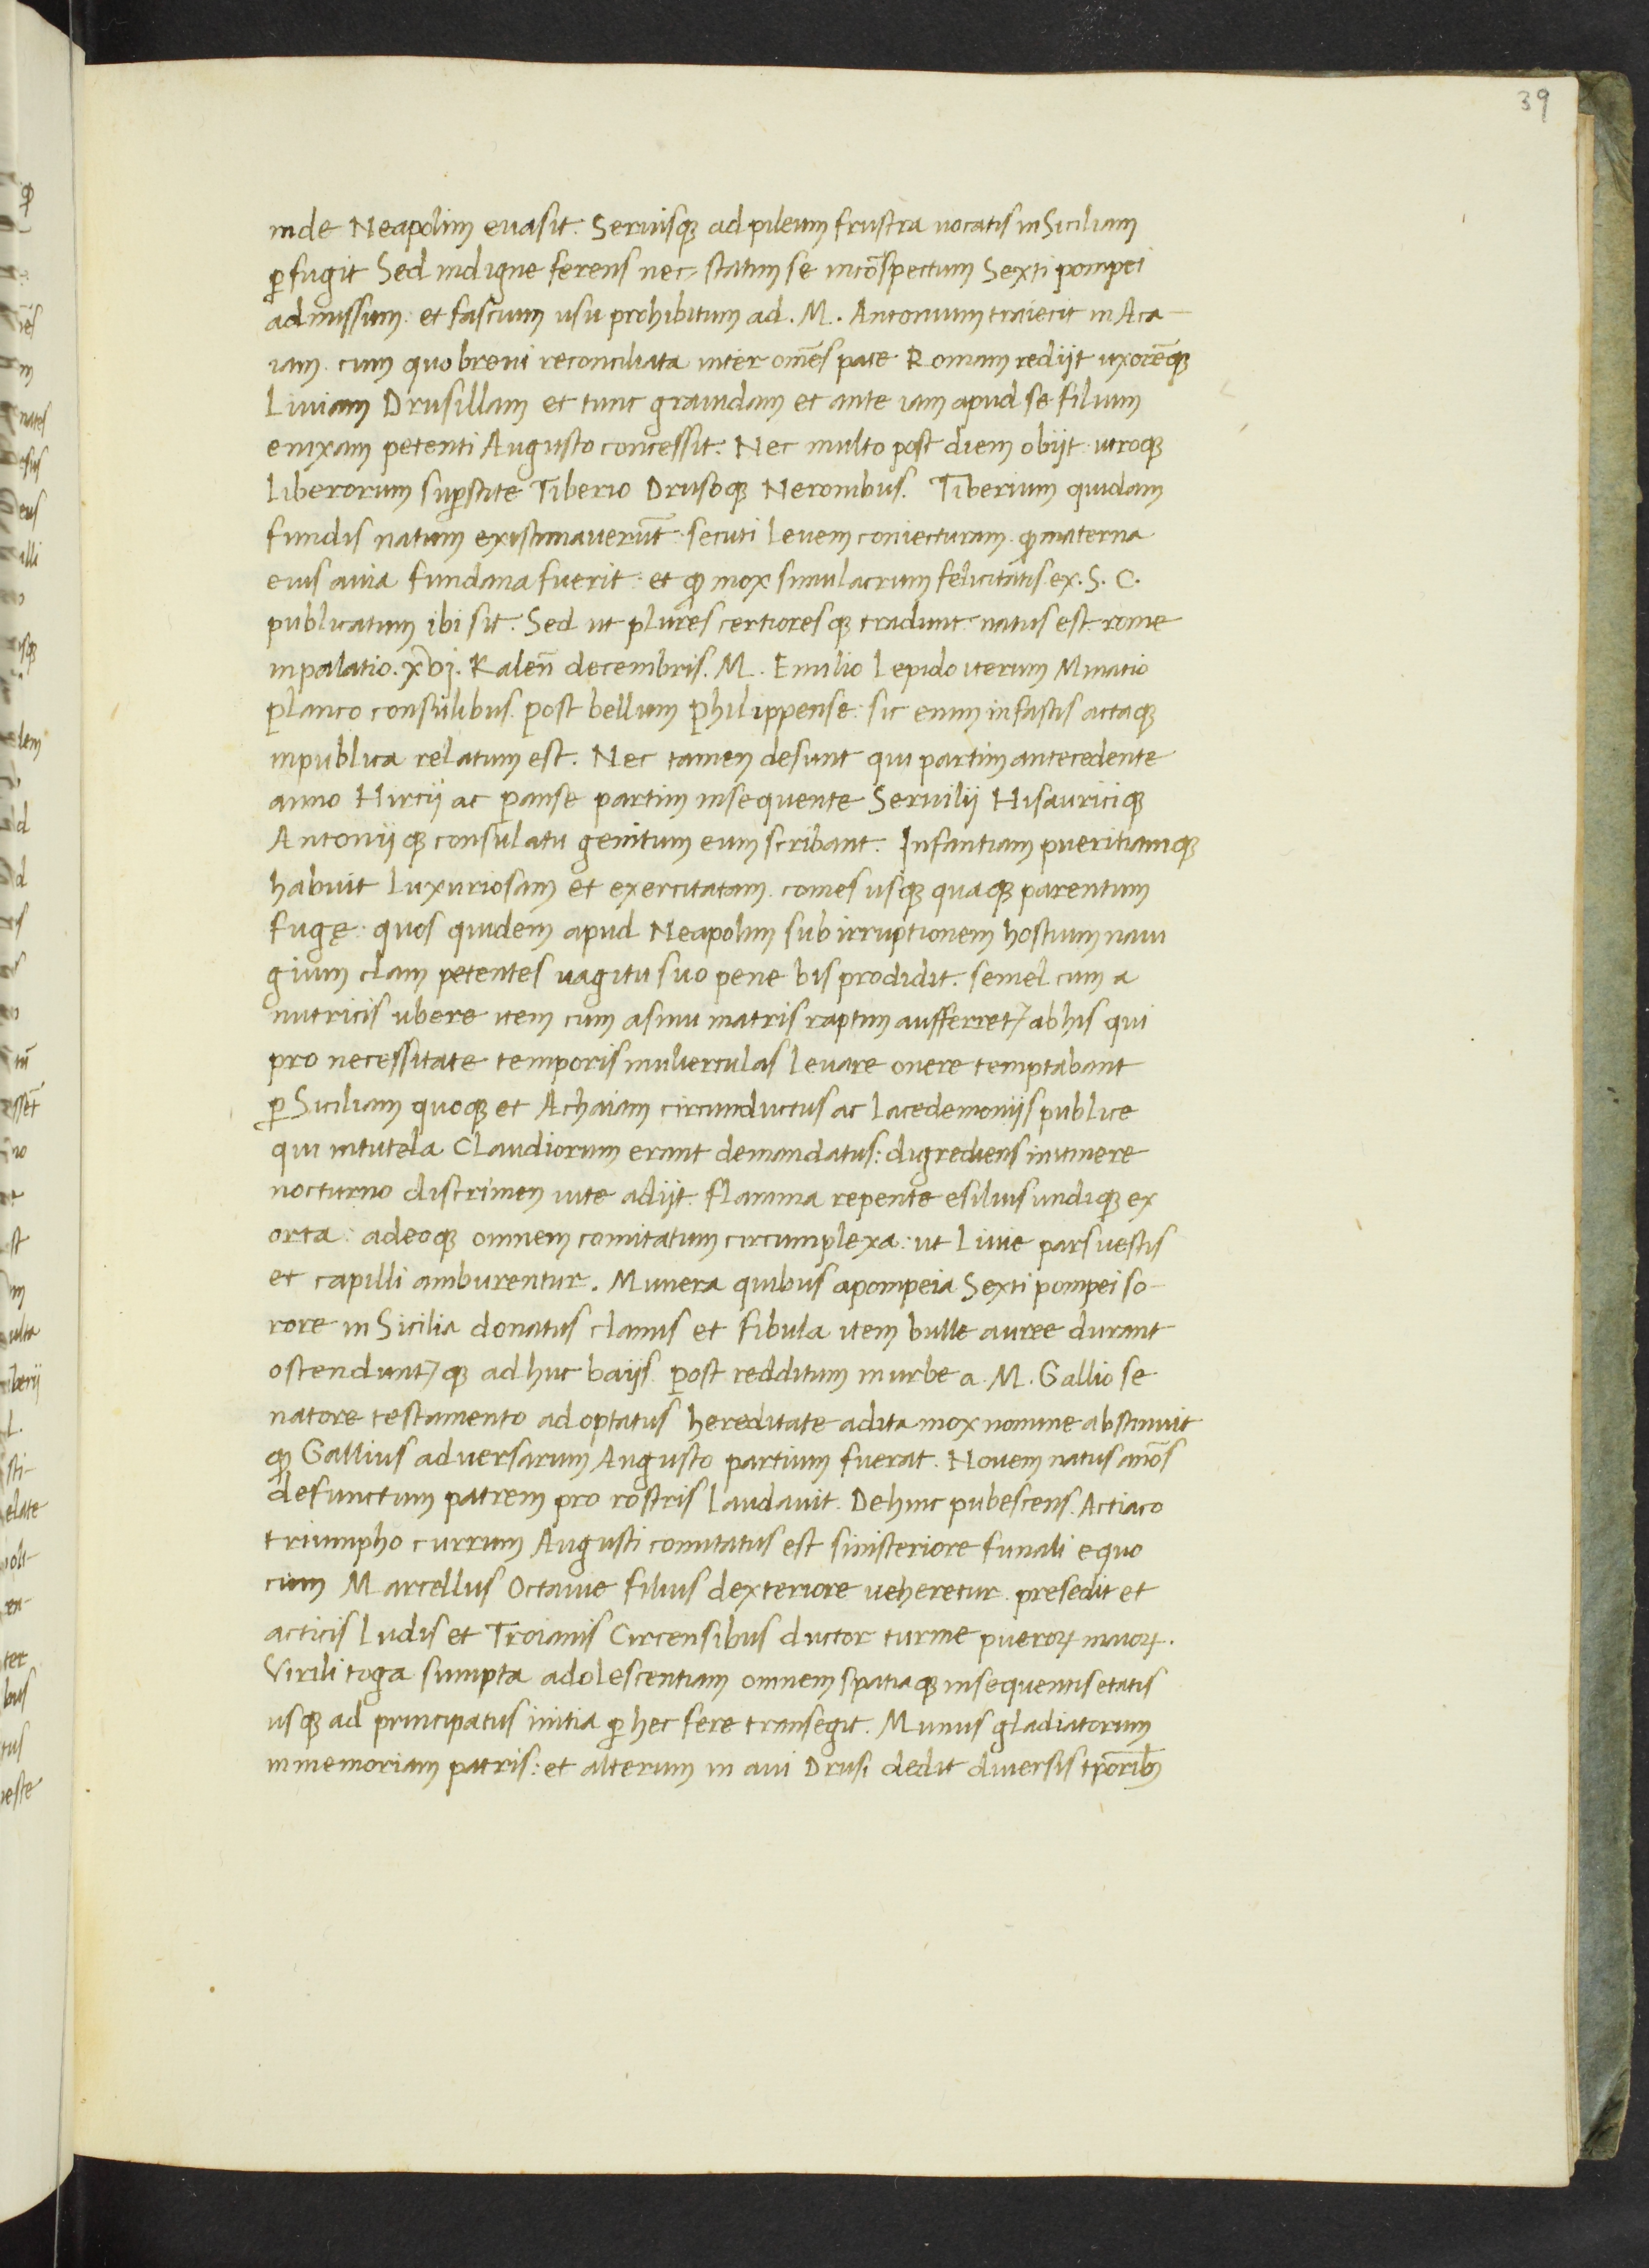 39
inde Neapolim euasit. Seruisq; ad pileum frustra uocatis in Siciliam
ꝑfugit Sed indigne ferens nec statim se incōspectum Sexti pompei
admissum: et fascium usu prohibitum ad. M. Antonium traiecit in Aca-
iam. cum quo breui reconciliata inter om̄es pace Romam redijt uxorēq;
Liuiam Drusillam et tunc grauidam et ante iam apud se filium
enixam petenti Augusto concessit. Nec multo post diem obijt utroq;
Liberorum suꝑstite Tiberio Drusoq; Neronibus. Tiberium quidam
fundis natum existimauerūt: secuti leuem coniecturam. ꝙ materna
eius auia fundana fuerit: et ꝙ mox simulacrum felicitatis. ex. S. C.
publicatum ibi sit. Sed ut plures certioresq; tradunt: natus est rome
in palatio. xvj. Kaleñ decembris. M. Emilio Lepido iterum Munatio
planco consulibus. post bellum philippense: sic enim in fastis actaq;
inpublica relatum est. Nec tamen desunt qui partim antecedente
anno Hircij ac panse partim insequente Seruilij Hisauriciq;
Antonijq; consulatu genitum eum scribant. Infantiam pueritiamq;
habuit luxuriosam et exercitatam. comes usq; quaq; parentum
fugę: quos quidem apud Neapolim sub irruptionem hostium naui
gium clam petentes uagitu suo pene bis prodidit. semel cum a
nutricis ubere item cum asinu matris raptim aufferret⁊ abhis qui
pro necessitate temporis mulierculas leuare onere temptabant
ꝑ Siciliam quoq; et Achaiam circumductus ac lacedemonijs publice
qui intutela Claudiorum erant demandatus: digrediens initinere
nocturno discrimen uite adijt. flamma repente esiluis undiq; ex
orta: adeoq; omnem comitatum circumplexa: ut Liuie pars uestis
et capilli amburentur. Munera quibus apompeia Sexti pompei so-
rore in Sicilia donatus clamis et fibula item bulle auree durant
ostendunt⁊q; adhuc baijs. post redditum inurbe a. M. Gallio se
natore testamento adoptatus hereditate adita mox nomine abstinuit
ꝙ Gallius aduersarum Augusto partium fuerat. Nouem natus annōs
defunctum patrem pro rostris laudauit. Dehinc pubescens. Actiaco
triumpho currum Augusti comitatus est sinisteriore funali equo
cum Marcellus Octauie filius dexteriore ueheretur. presedit et
acticis ludis et Troianis Circensibus ductor turme pueroꝝ maioꝝ.
Virili toga sumpta adolescentiam omnem spatiaq; insequentis etatis
usq; ad principatus initia ꝑ hec fere transegit. Munus gladiatorum
inmemoriam patris: et alterum in aui Drusi dedit diuersis tꝑorib;